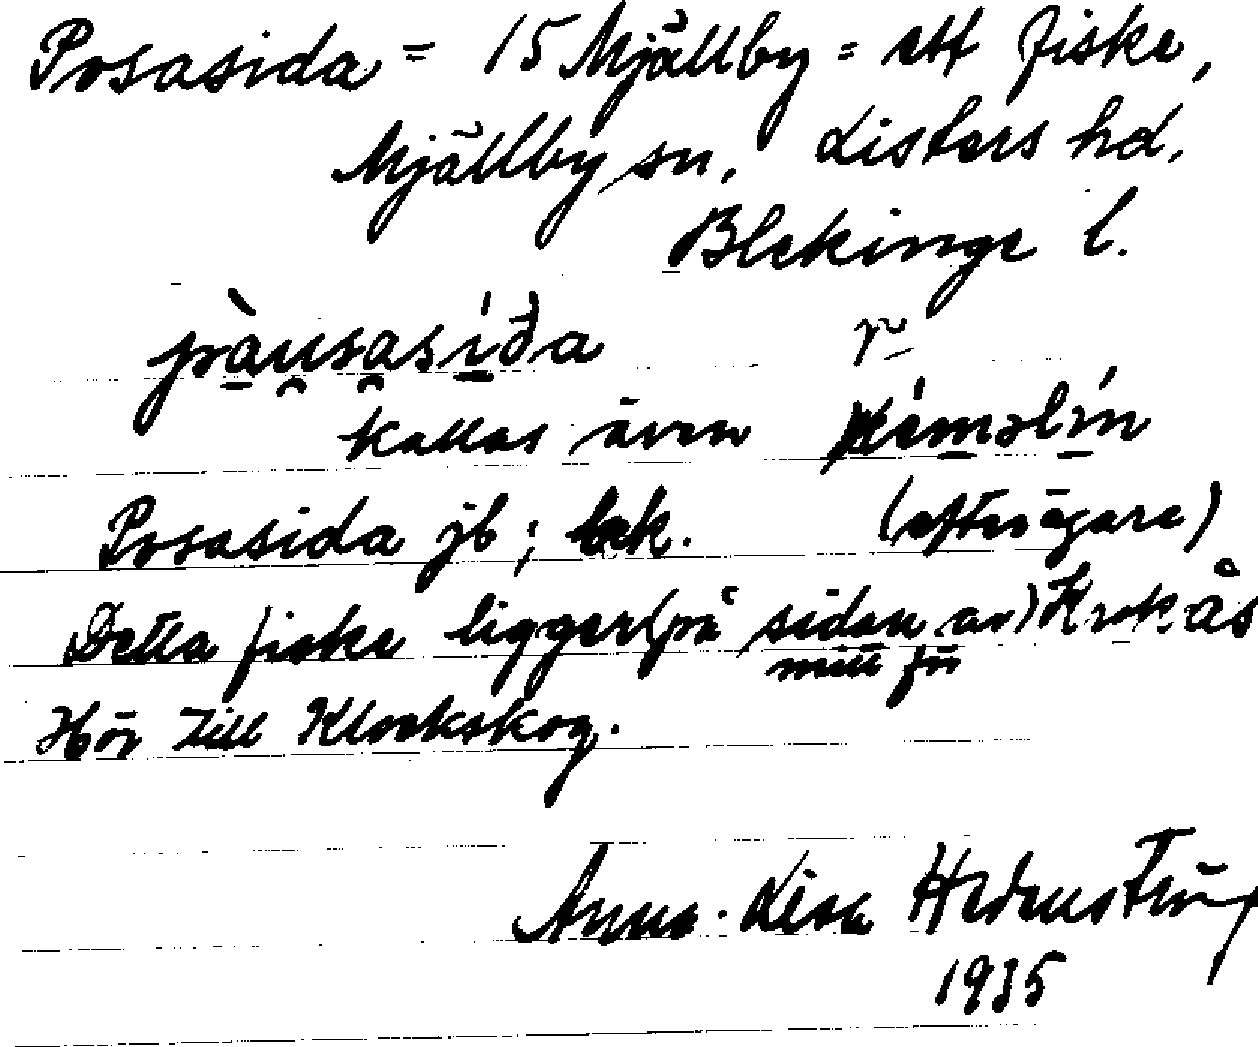 Posasida = 15 Mjällby = ett fiske,
Mjällby sn, Listers hd,
Blekinge l.
pàu̯sa̯síđa
kallas även
Posasida jb; bek. (efter ägare)
Detta fiske ligger (på sidan av) Krokås
mitt för
Hör till Klockskog.
Anna-Lisa Hedenström
1935